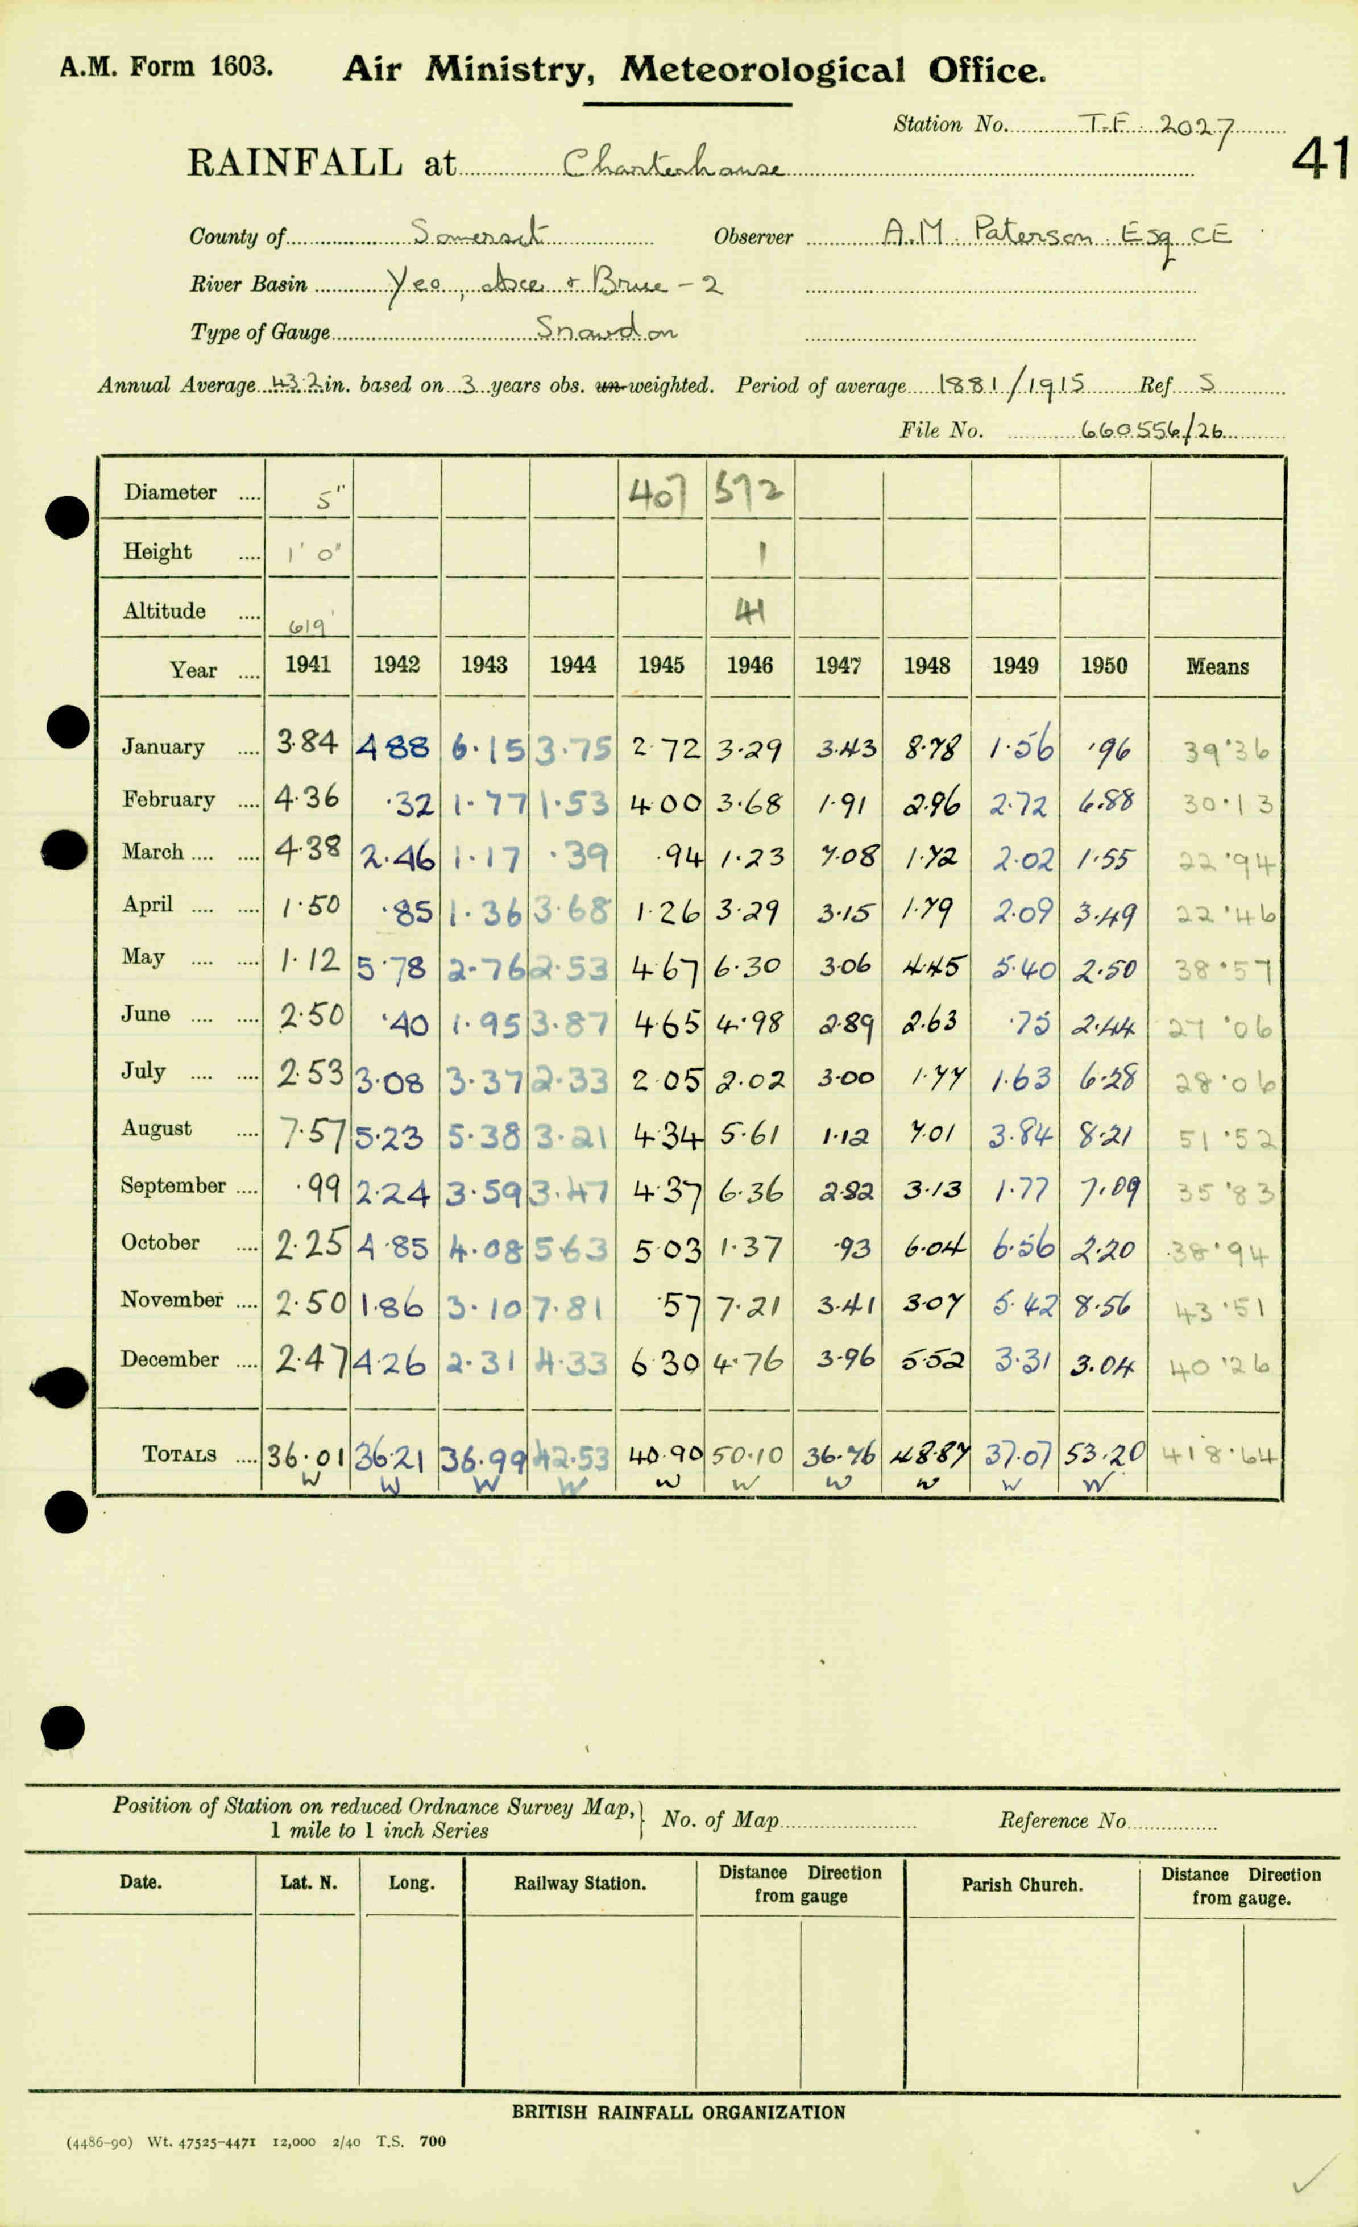 A.M. Form 1603. Air Ministry, Meteorological Office.
Station No. T.F. 2027
41
RAINFALL at Charterhouse
County of Somerset Observer A.M. Paterson Esq CE
River Basin Yeo, Axe + Brue - 2
Type of Gauge Snowdon
Annual Average 43.2 in. based on 3 years obs. un-weighted. Period of average 1881/1915 Ref. S
File No. 660556/26
Diameter .... 5" 407 572
Height .... 1' 0" 1
Altitude .... 619' 41
Year .... 1941 1942 1943 1944 1945 1946 1947 1948 1949 1950 Means
January .... 3.84 4.88 6.15 3.75 2.72 3.29 3.43 8.78 1.56 .96 39.36
February .... 4.36 .32 1.77 1.53 4.00 3.68 1.91 2.96 2.72 6.88 30.13
March .... .... 4.38 2.46 1.17 .39 .94 1.23 7.08 1.72 2.02 1.55 22.94
April .... .... 1.50 .85 1.36 3.68 1.26 3.29 3.15 1.79 2.09 3.49 22.46
May .... .... 1.12 5.78 2.76 2.53 4.67 6.30 3.06 4.45 5.40 2.50 38.57
June .... .... 2.50 .40 1.95 3.87 4.65 4.98 2.89 2.63 .75 2.44 27.06
July .... .... 2.53 3.08 3.37 2.33 2.05 2.02 3.00 1.77 1.63 6.28 28.06
August .... 7.57 5.23 5.38 3.21 4.34 5.61 1.12 7.01 3.84 8.21 51.52
September .... .99 2.24 3.59 3.47 4.37 6.36 2.82 3.13 1.77 7.09 35.83
October .... 2.25 4.85 4.08 5.63 5.03 1.37 .93 6.04 6.56 2.20 38.94
November .... 2.50 1.86 3.10 7.81 .57 7.21 3.41 3.07 5.42 8.56 43.51
December .... 2.47 4.26 2.31 4.33 6.30 4.76 3.96 5.52 3.31 3.04 40.26
TOTALS .... 36.01 36.21 36.99 42.53 40.90 50.10 36.76 48.87 37.07 53.20 418.64
W W W W W W W W W W
Position of Station on reduced Ordnance Survey Map, No. of Map Reference No.
1 mile to 1 inch Series
Date. Lat. N. Long. Railway Station. Distance Direction from gauge Parish Church. Distance Direction from gauge.
BRITISH RAINFALL ORGANIZATION
(4486-90) Wt. 47525-4471 12,000 2/40 T.S. 700